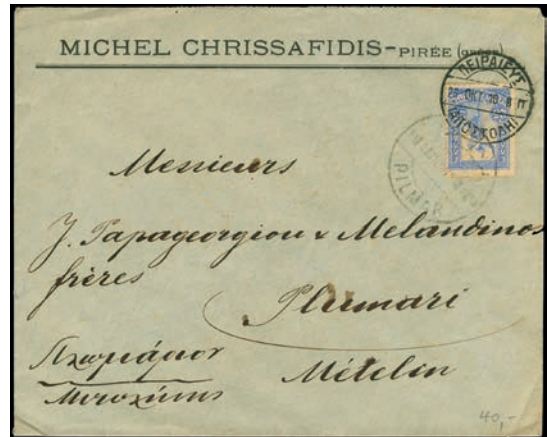 MICHEL CHRISSAFIDIS-PIRÉE (grèce)
ΠΕΙΡΑΙΕΥΣ
ΟΚΤ
ΑΠΟΣΤΟΛΗ
Messieurs
J. Papageorgiou & Melandinos
frères
Plumari
Πλωμάριον
Mételin
Μυτιλήνης
40,-